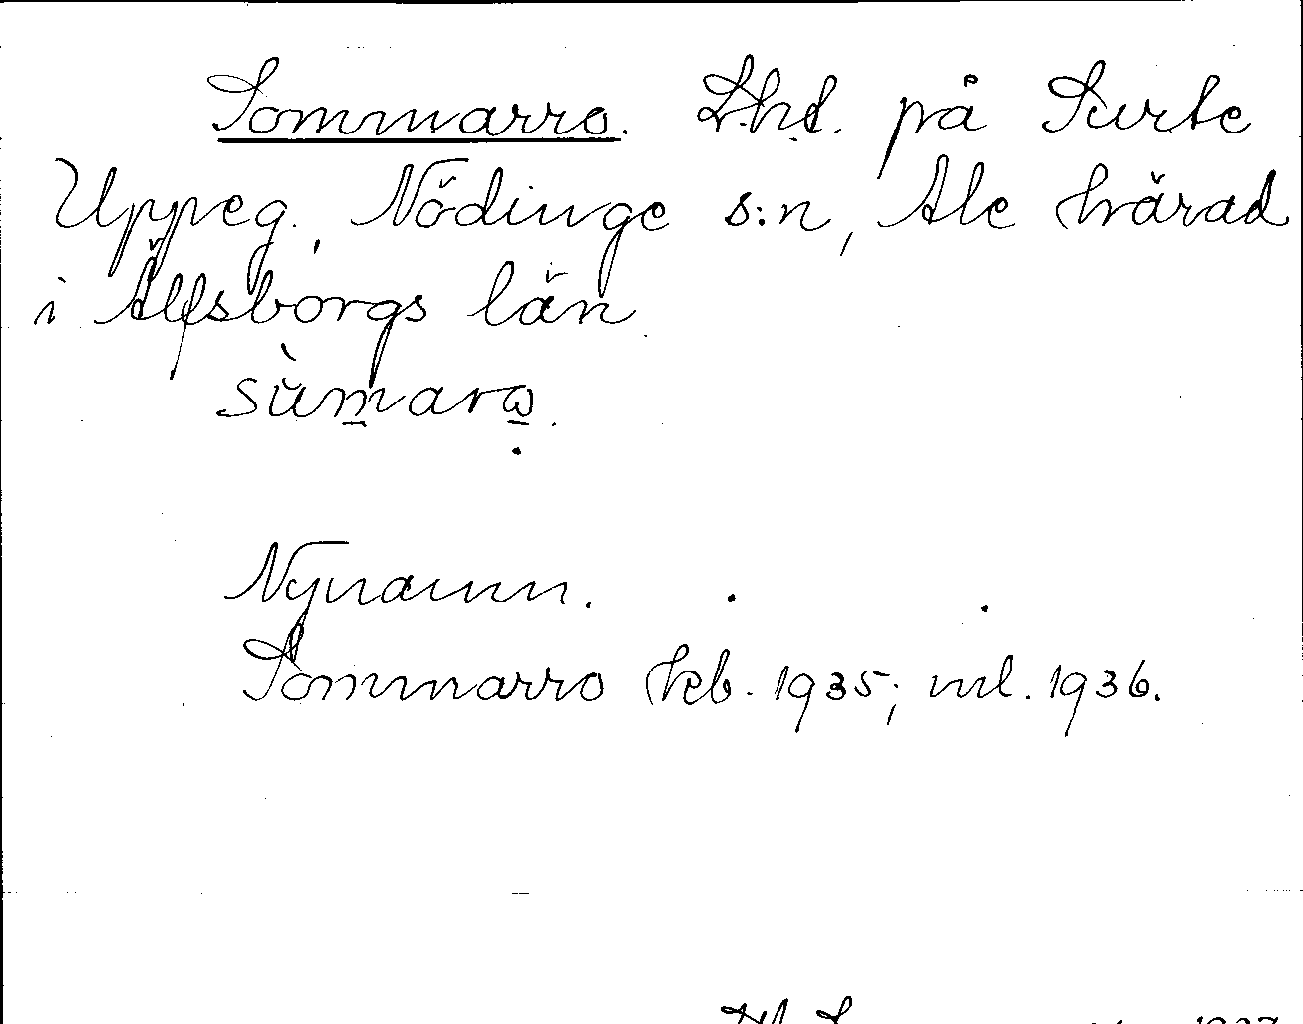 Sommarro. L.h.t. på Surte
Uppeg., Nödinge s:n, Ale härad
i Älfsborgs län.
sùmarω.
Nynamn.
Sommarro hkb. 1935; ml. 1936.